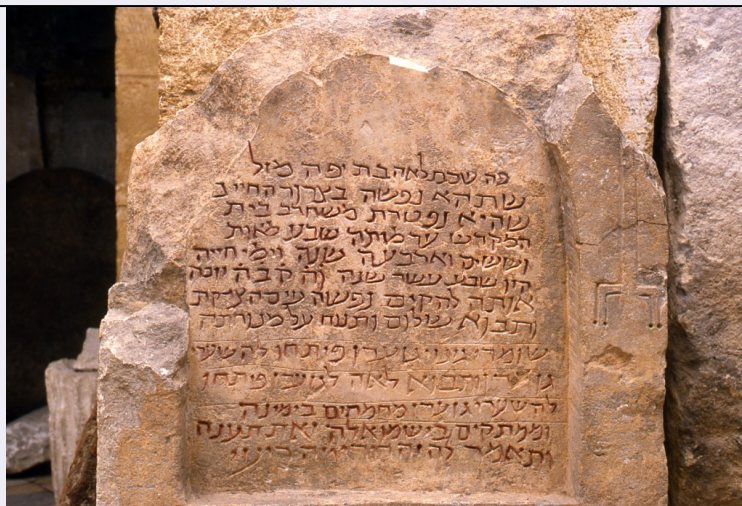 פה שכבת לאה בת יפה מזל
שתהא נפשה בצרור החיים
שהיא נפטרת משחרב בית
המקדש עד מותה שבע מאות
וששים וארבעה שנה וימי חייה
היו שבע עשר שנה והקבה יזכה
אותה להקים נפשה עם הצדקת
ותבוא שלום ותנוח על מנוחתה
שומרי גינזי גן עדן פיתחו לה שערי
גן עדן ותבוא לאה לגן עדן פיתחו
לה שערי גן עדן מחמדים בימינה
וממתקים בישמואלה זאת תענה
ותאמר לה זה דודי וזה ריעי